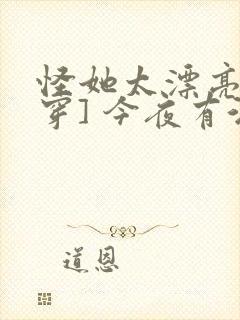 怪她太漂亮
穿] 今夜有
道恩